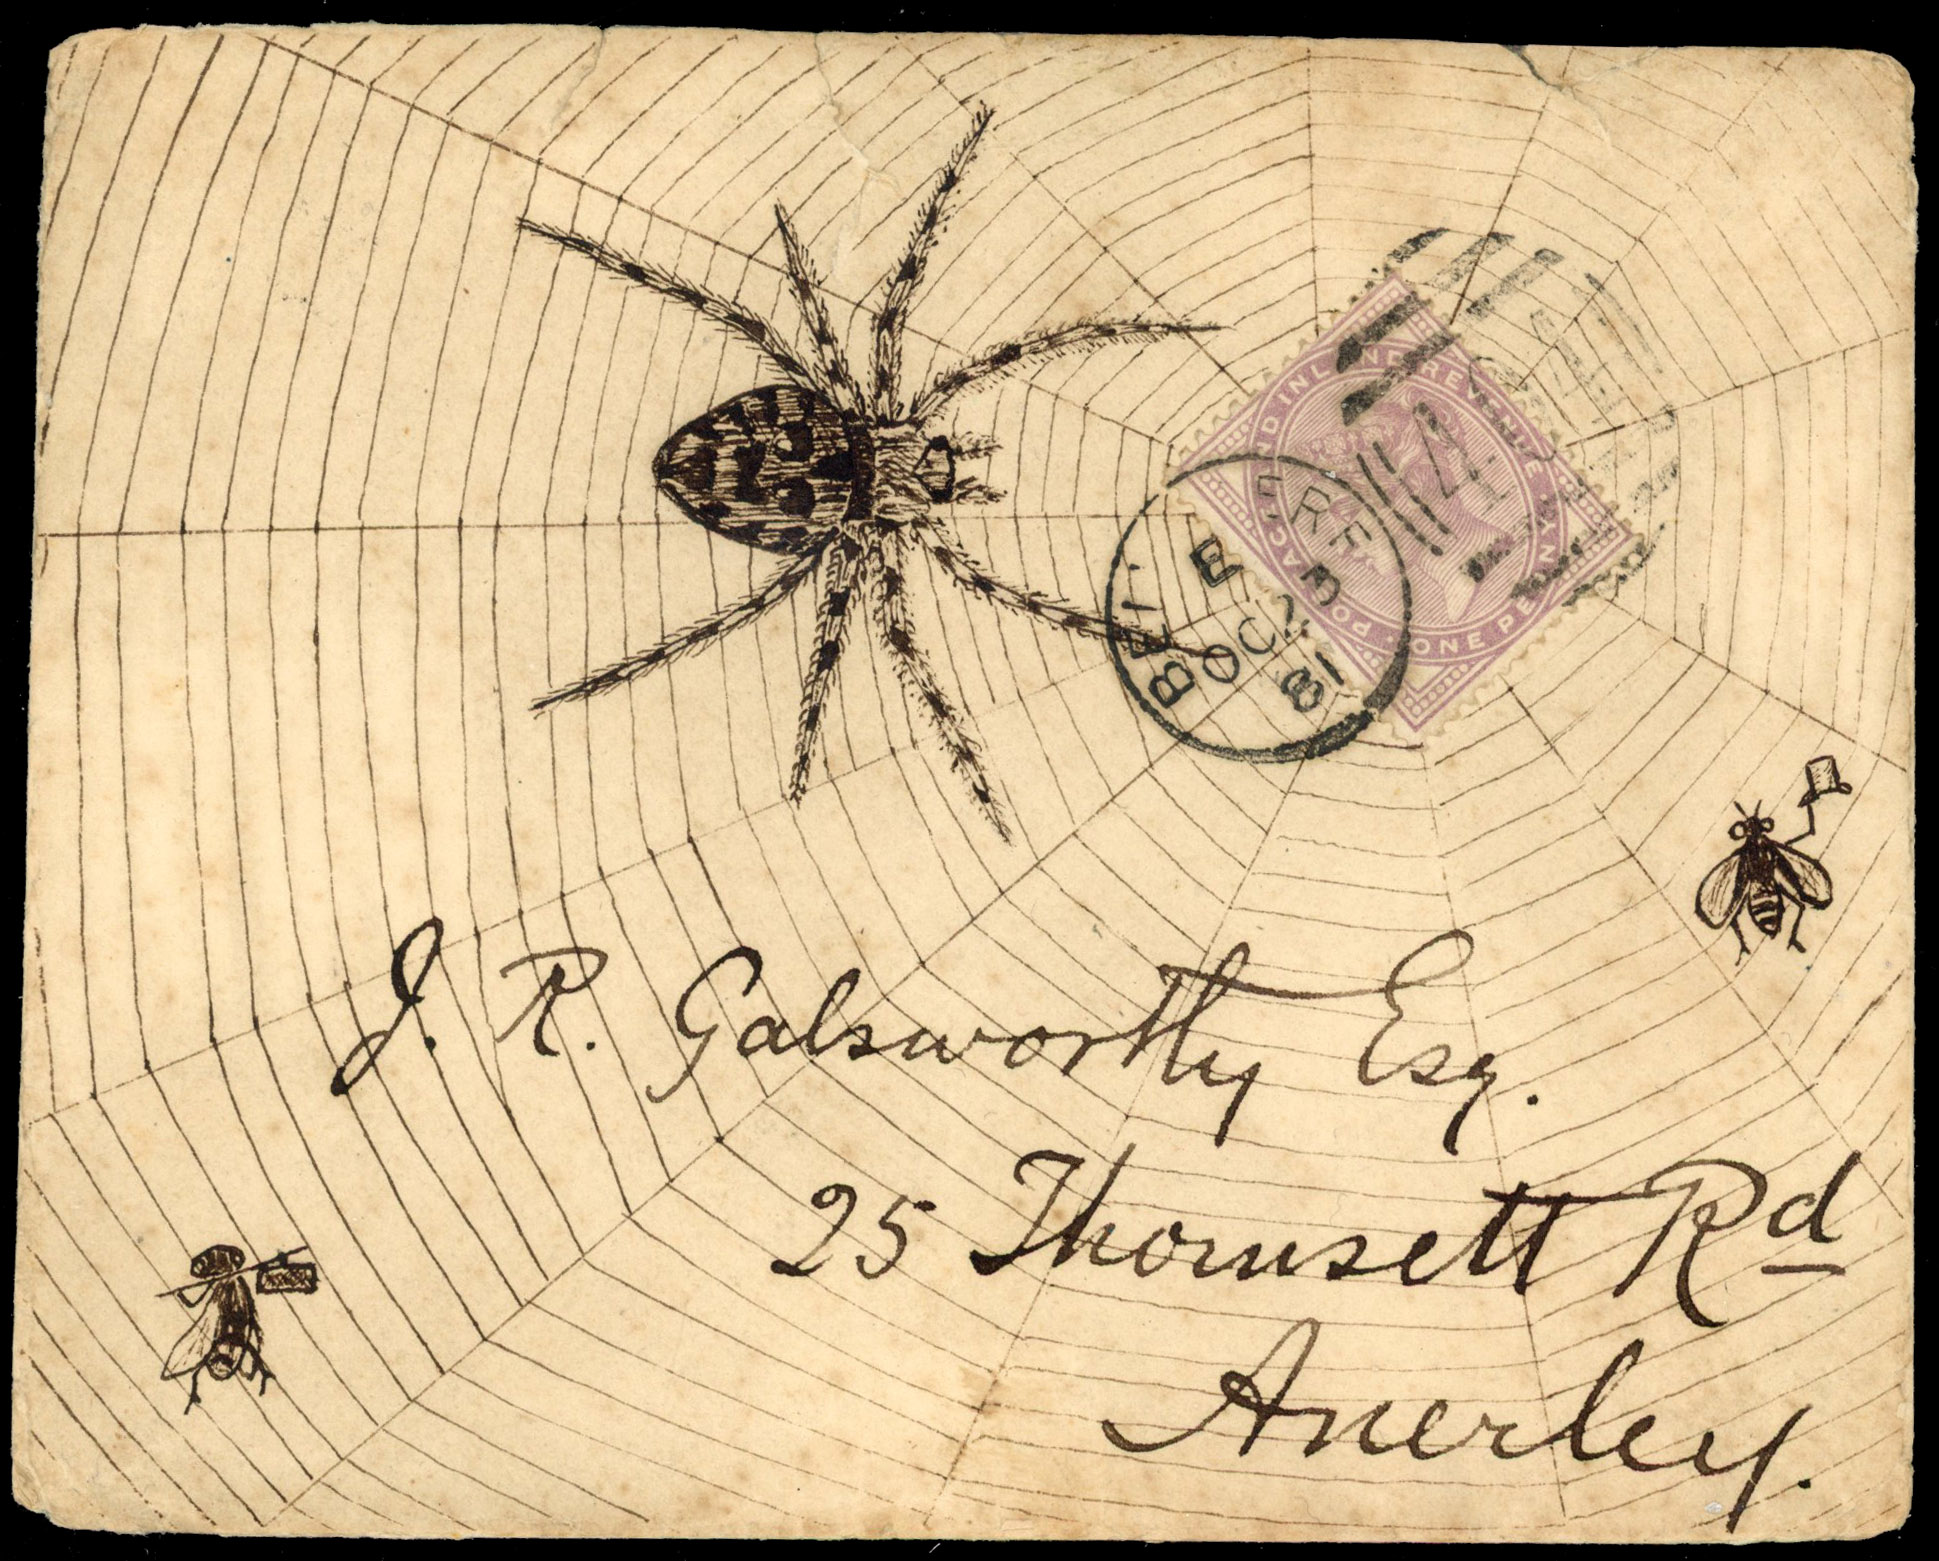 POSTAGE AND INLAND REVENUE
ONE PENNY
E
OC 23
81
J. R. Galsworthy Esq.
25 Thornsett Rd
Anerley.